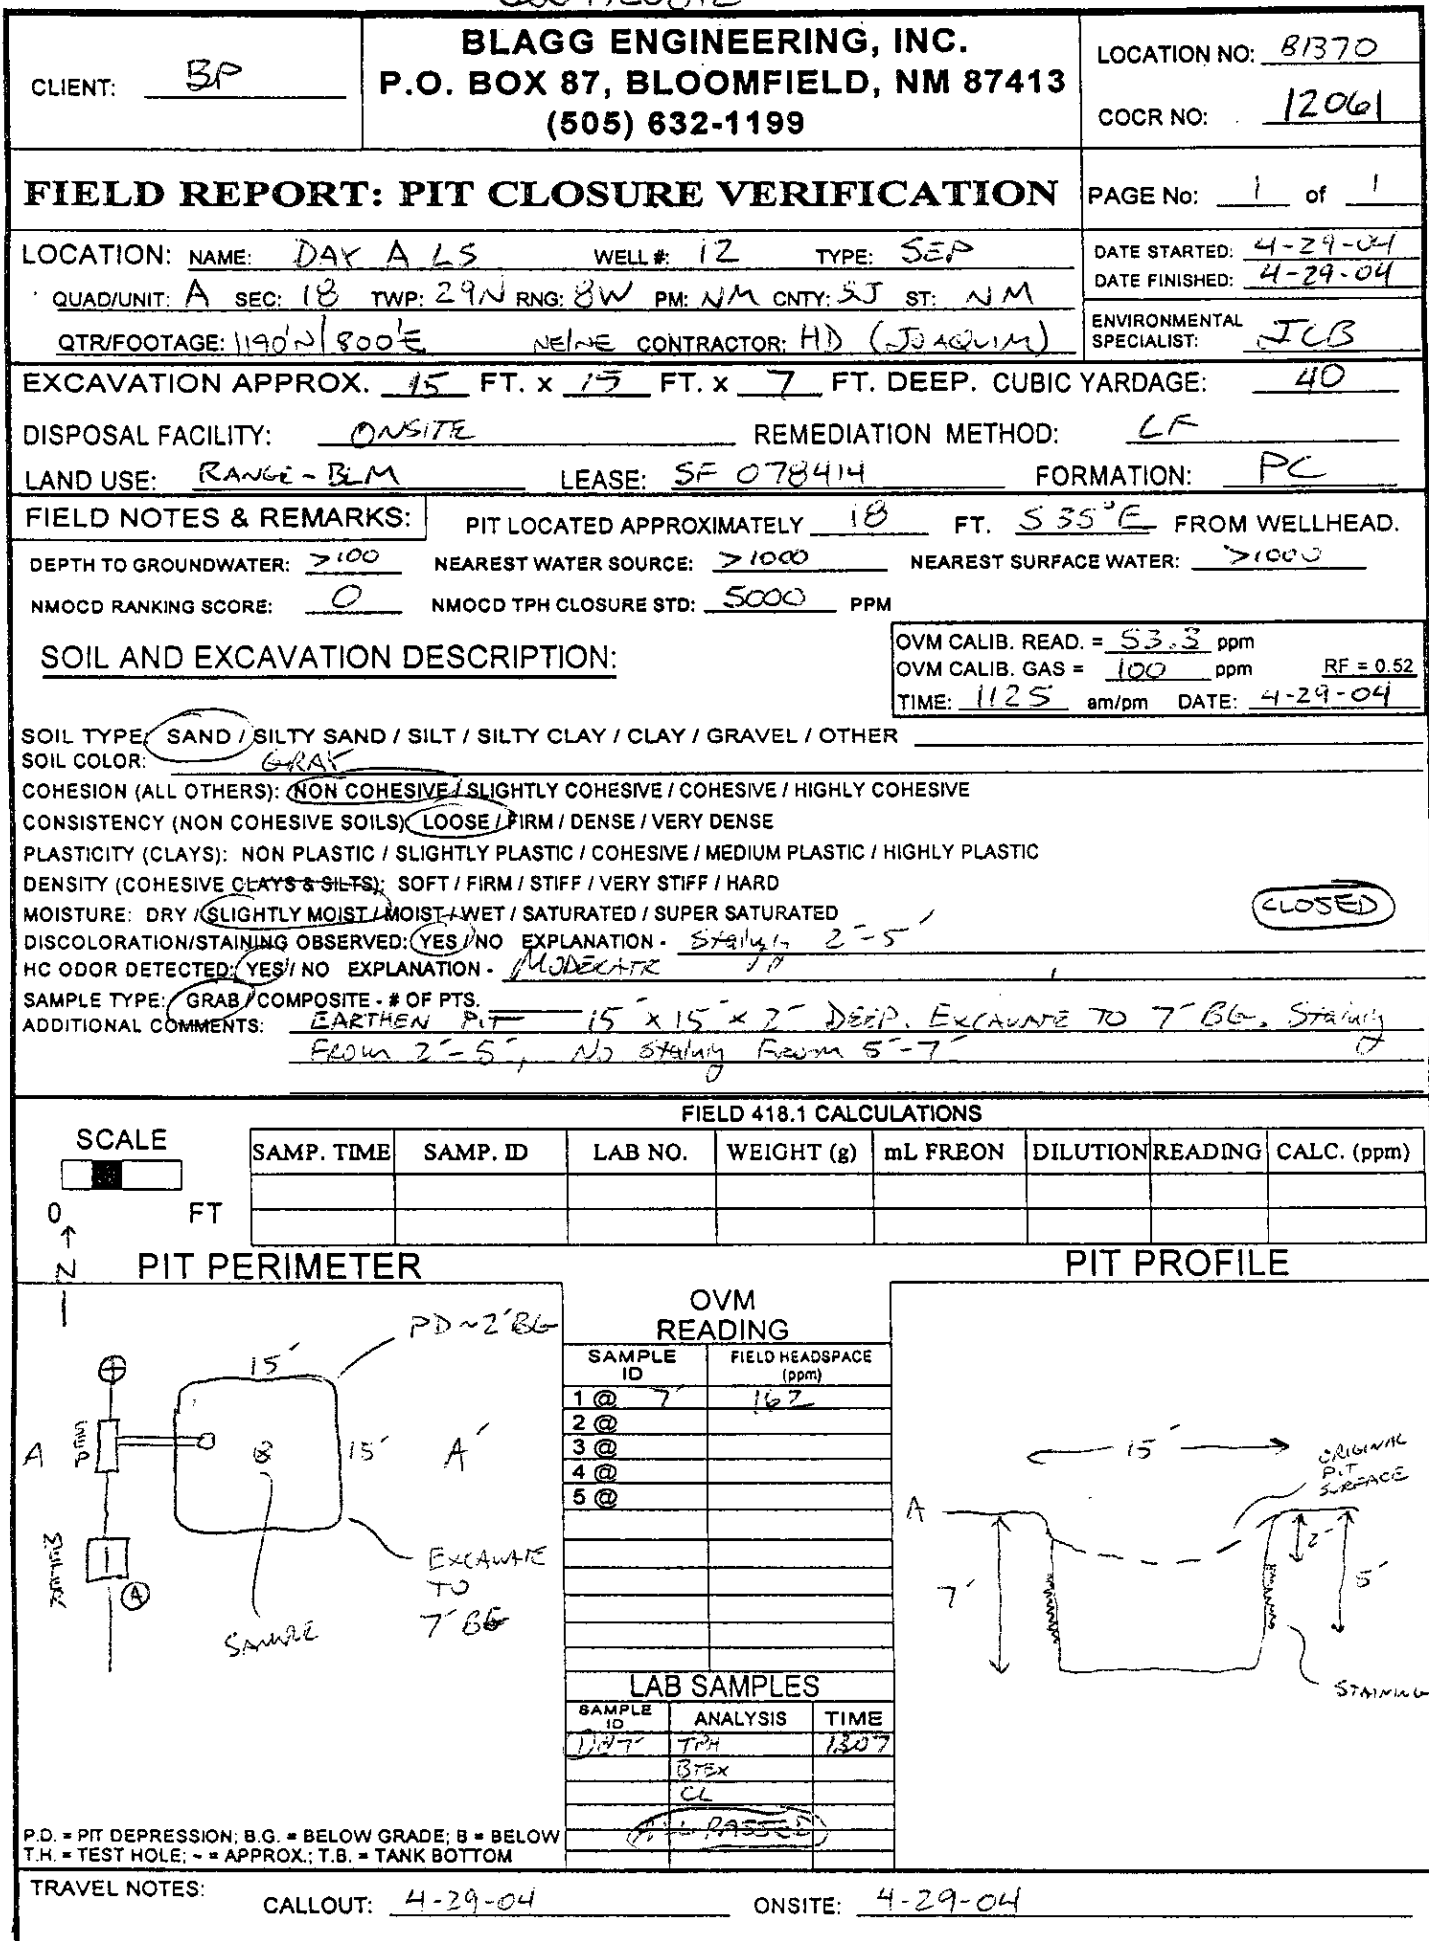 BLAGG ENGINEERING, INC.
P.O. BOX 87, BLOOMFIELD, NM 87413
(505) 632-1199
CLIENT: BP
LOCATION NO: B1370
COCR NO: 12061
FIELD REPORT: PIT CLOSURE VERIFICATION
PAGE No: 1 of 1
LOCATION: NAME: DAY A LS WELL #: 12 TYPE: SEP
DATE STARTED: 4-29-04
DATE FINISHED: 4-29-04
QUAD/UNIT: A SEC: 18 TWP: 29N RNG: 8W PM: NM CNTY: SJ ST: NM
QTR/FOOTAGE: 1190'N/800'E NE/NE CONTRACTOR: HD (JOAQUIM)
ENVIRONMENTAL
SPECIALIST: JCB
EXCAVATION APPROX. 15 FT. x 15 FT. x 7 FT. DEEP. CUBIC YARDAGE: 40
DISPOSAL FACILITY: ONSITE REMEDIATION METHOD: LF
LAND USE: RANGE - BLM LEASE: SF 078414 FORMATION: PC
FIELD NOTES & REMARKS: PIT LOCATED APPROXIMATELY 18 FT. S35°E FROM WELLHEAD.
DEPTH TO GROUNDWATER: >100 NEAREST WATER SOURCE: >1000 NEAREST SURFACE WATER: >1000
NMOCD RANKING SCORE: 0 NMOCD TPH CLOSURE STD: 5000 PPM
SOIL AND EXCAVATION DESCRIPTION:
OVM CALIB. READ. = 53.3 ppm
OVM CALIB. GAS = 100 ppm RF = 0.52
TIME: 1125 am/pm DATE: 4-29-04
SOIL TYPE: SAND / SILTY SAND / SILT / SILTY CLAY / CLAY / GRAVEL / OTHER
SOIL COLOR: GRAY
COHESION (ALL OTHERS): NON COHESIVE / SLIGHTLY COHESIVE / COHESIVE / HIGHLY COHESIVE
CONSISTENCY (NON COHESIVE SOILS): LOOSE / FIRM / DENSE / VERY DENSE
PLASTICITY (CLAYS): NON PLASTIC / SLIGHTLY PLASTIC / COHESIVE / MEDIUM PLASTIC / HIGHLY PLASTIC
DENSITY (COHESIVE CLAYS & SILTS): SOFT / FIRM / STIFF / VERY STIFF / HARD
MOISTURE: DRY / SLIGHTLY MOIST / MOIST / WET / SATURATED / SUPER SATURATED
CLOSED
DISCOLORATION/STAINING OBSERVED: YES / NO EXPLANATION - Staining 2'-5'
HC ODOR DETECTED: YES / NO EXPLANATION - MODERATE
SAMPLE TYPE: GRAB / COMPOSITE - # OF PTS.
ADDITIONAL COMMENTS: EARTHEN PIT 15' x 15' x 2' DEEP. EXCAVATE TO 7' BG. Staining
FROM 2'-5', NO Staining FROM 5'-7'
FIELD 418.1 CALCULATIONS
SCALE
0 FT
SAMP. TIME SAMP. ID LAB NO. WEIGHT (g) mL FREON DILUTION READING CALC. (ppm)
N
PIT PERIMETER
PIT PROFILE
PD ~2' BG
15'
SEP
A
15'
A'
METER
A
SAMPLE
EXCAVATE
TO
7' BG
OVM
READING
SAMPLE ID FIELD HEADSPACE (ppm)
1 @ 7' 162
2 @
3 @
4 @
5 @
15'
ORIGINAL
PIT
SURFACE
A
2'
5'
7'
STAINING
LAB SAMPLES
SAMPLE ID ANALYSIS TIME
TPH 1307
BTEX
CL
ALL PASSED
P.D. = PIT DEPRESSION; B.G. = BELOW GRADE; B = BELOW
T.H. = TEST HOLE; ~ = APPROX.; T.B. = TANK BOTTOM
TRAVEL NOTES:
CALLOUT: 4-29-04 ONSITE: 4-29-04